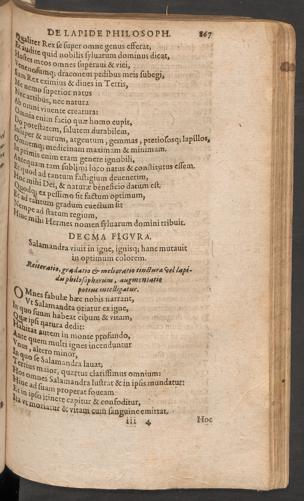 DE LAPIDE PHILOSOPH. 867
Qualiter Rex se super omne genus efferat,
audite quid nobilis syluarum dominus dicat,
Hostes meos omnes superaui & vici,
Venenosumq; draconem pedibus meis subegi,
Sum Rex eximius & diues in Terris,
nemo superior natus
artibus, nec natura
Ab omni viuente creatura:
Omnia enim facio quæ homo cupit,
potestatem, salutem durabilem,
& aurum, argentum, gemmas, pretiososq; lapillos,
medicinam maximam & minimam.
primis enim eram genere ignobili,
Antequam tam sublimi loco natus & constitutus essem.
quod ad tantum fastigium deuenerim,
mihi Dei, & naturæ beneficio datum est.
Quodq; ex pessimo sit factum optimum,
Et ad tantum gradum euectum sit
ad statum regium,
Hinc mihi Hermes nomen syluarum domini tribuit.
DECMA FIGVRA.
Salamandra viuit in igne, ignisq; hanc mutauit
in optimum colorem.
Reiteratio, gradatio & melioratio tincturæ vel lapi-
dis philosophorum, augmentatio
potius intelligatur.
OMnes fabulæ hæc nobis narrant,
Vt Salamandra oriatur ex igne,
In quo suum habeat cibum & vitam,
Quæ ipsi natura dedit:
Habitat autem in monte profundo,
Ante quem multi ignes incenduntur
Vnus, altero minor,
In quo se Salamandra lauat,
Tertius maior, quartus clarissimus omnium:
Hos omnes Salamandra lustrat & in ipsis mundatur:
Hinc ad suam properat foueam
in ipso itinere capitur & confoditur,
Vt moriatur & vitam cum sanguine emittat.
iii 4 Hoc